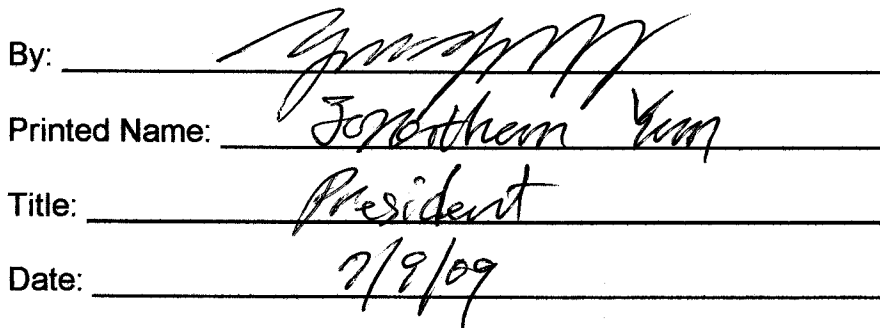 By:
Printed Name: Jonorthern Yun
Title: President
Date: 7/9/09